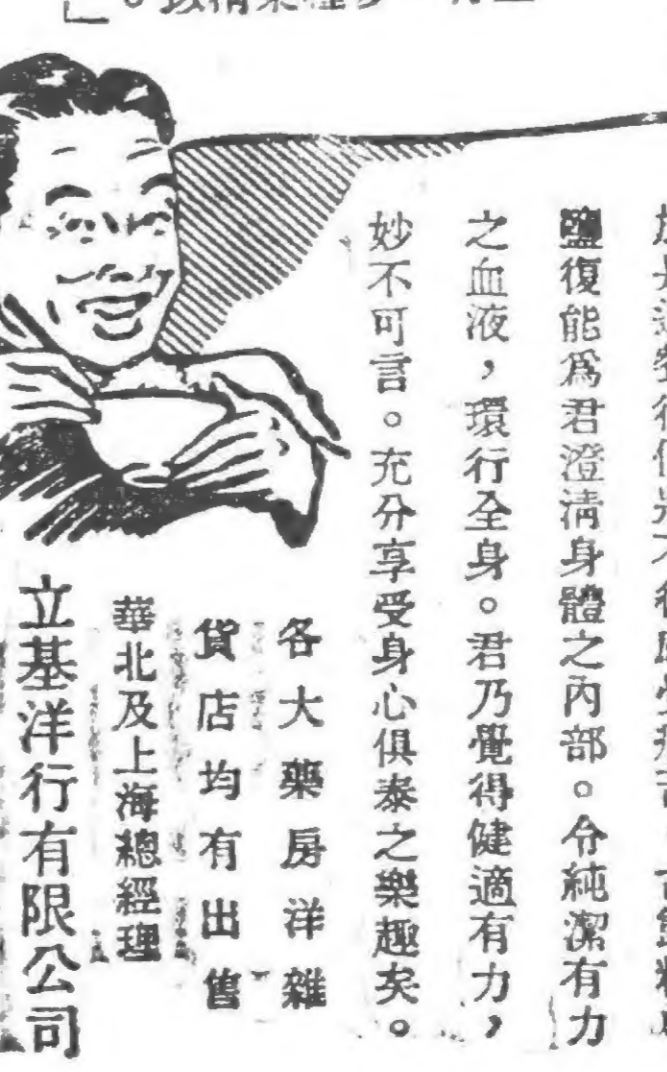 鹽復能爲君澄清身體之內部。令純潔有力
之血液，環行全身。君乃覺得健適有力，
妙不可言。充分享受身心俱泰之樂趣矣。
各大藥房洋雜
貨店均有出售
華北及上海總經理
立基洋行有限公司